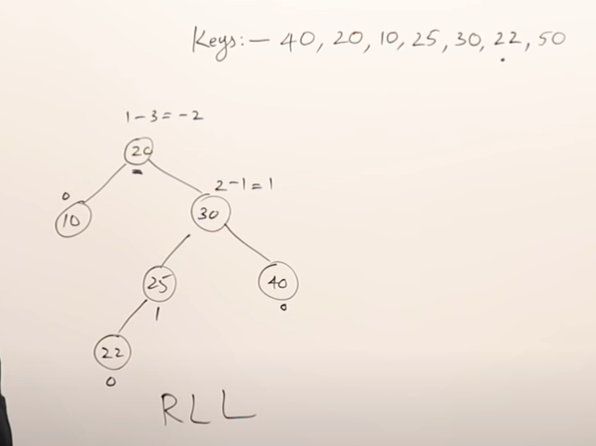 Keys:- 40, 20, 10, 25, 30, 22, 50
1-3=-2
20
0
2-1=1
10
30
25
40
1
0
22
0
RLL